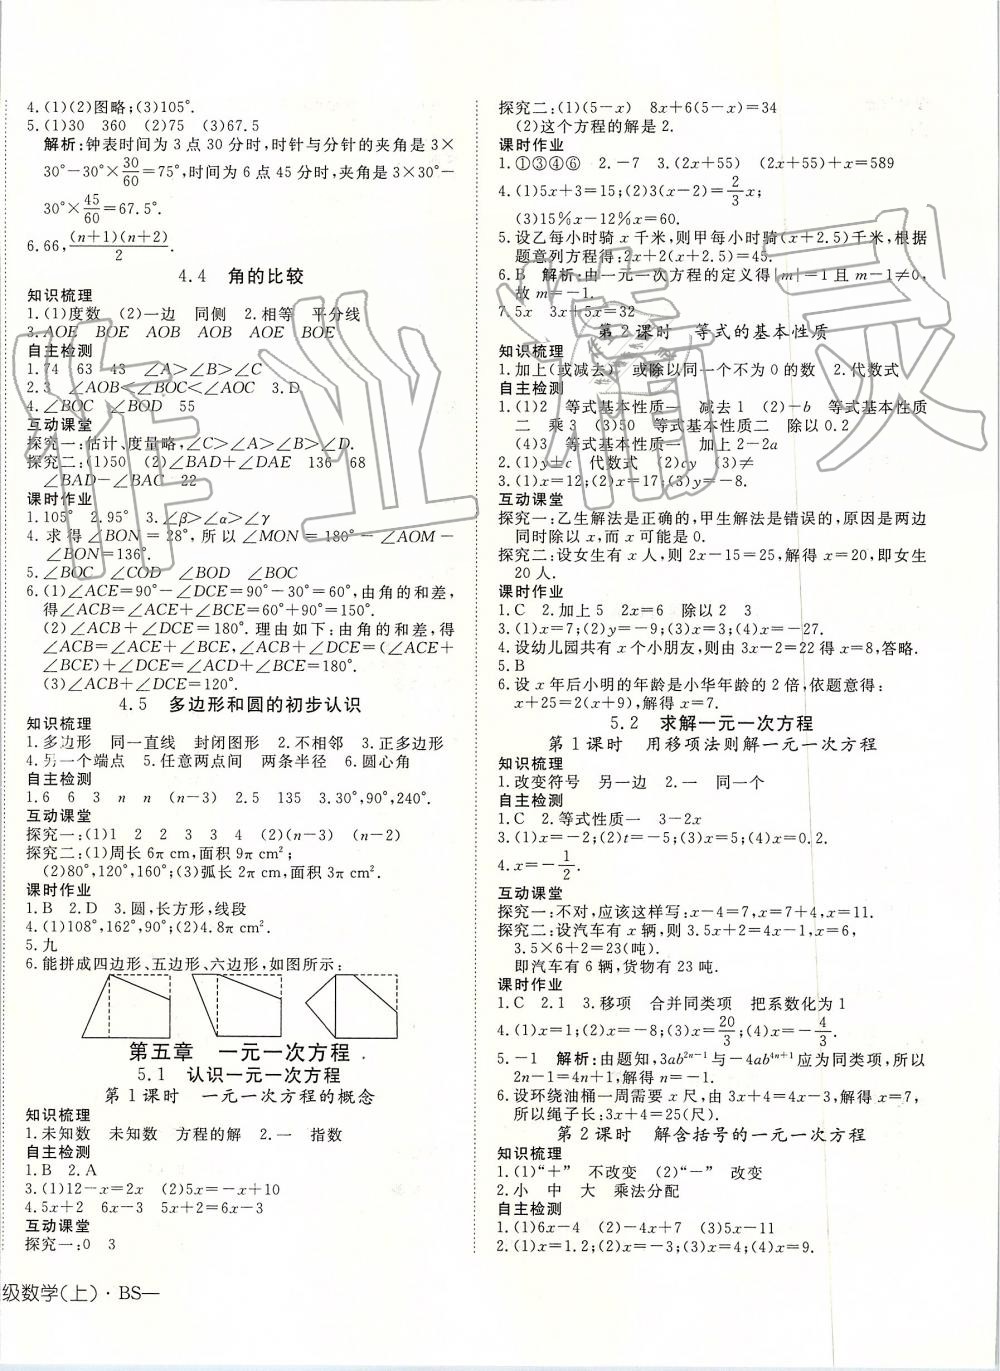 4.(1)(2)图略;(3)105°.
5.(1)30 360 (2)75 (3)67.5
解析:钟表时间为3点30分时,时针与分针的夹角是3×
30°-30°×30/60=75°,时间为6点45分时,夹角是3×30°-
30°×45/60=67.5°.
6.66,(n+1)(n+2)/2.
4.4 角的比较
知识梳理
1.(1)度数 (2)一边 同侧 2.相等 平分线
3.AOE BOE AOB AOB AOE BOE
自主检测
1.74 63 43 ∠A>∠B>∠C
2.3 ∠AOB ∠BOC<∠AOC 3.D
4.∠BOC ∠BOD 55
互动课堂
探究一:估计、度量略,∠C>∠A>∠B>∠D.
探究二:(1)50 (2)∠BAD+∠DAE 136 68
∠BAD-∠BAC 22
课时作业
1.105° 2.95° 3.∠β>∠α>∠γ
4.求得∠BON=28°,所以∠MON=180°-∠AOM-
∠BON=136°.
5.∠BOC ∠COD ∠BOD ∠BOC
6.(1)∠ACE=90°-∠DCE=90°-30°=60°,由角的和差,
得∠ACB=∠ACE+∠BCE=60°+90°=150°.
(2)∠ACB+∠DCE=180°.理由如下:由角的和差,得
∠ACB=∠ACE+∠BCE,∠ACB+∠DCE=(∠ACE+
∠BCE)+∠DCE=∠ACE+∠DCE+∠BCE=180°.
(3)∠ACB+∠DCE=120°.
4.5 多边形和圆的初步认识
知识梳理
1.多边形 同一直线 封闭图形 2.不相邻 3.正多边形
4.另一个端点 5.任意两点间 两条半径 6.圆心角
自主检测
1.6 6 3 n n (n-3) 2.5 135 3.30°,90°,240°.
互动课堂
探究一:(1)1 2 2 3 3 4 (2)(n-3) (n-2)
探究二:(1)周长6π cm,面积9π cm²;
(2)80°,120°,160°;(3)弧长2π cm,面积3π cm².
课时作业
1.B 2.D 3.圆,长方形,线段
4.(1)108°,162°,90°;(2)4.8π cm².
5.九
6.能拼成四边形、五边形、六边形,如图所示:
第五章 一元一次方程
5.1 认识一元一次方程
第1课时 一元一次方程的概念
知识梳理
1.未知数 未知数 方程的解 2.一 指数
自主检测
1.B 2.A
3.(1)12-x=2x (2)5x=-x+10
4.5x+2 6x-3 5x+2=6x-3
互动课堂
探究一:0 3
级数学(上)·BS—
探究二:(1)(5-x) 8x+6(5-x)=34
(2)这个方程的解是2.
课时作业
1.①③④⑥ 2.-7 3.(2x+55) (2x+55)+x=589
4.(1)5x+3=15;(2)3(x-2)=2/3x;
(3)15%x-12%x=60.
5.设乙每小时骑x千米,则甲每小时骑(x+2.5)千米,根据
题意列方程得:2x+2(x+2.5)=45.
6.B 解析:由一元一次方程的定义得|m|=1且m-1≠0,
故m=-1.
7.5x 3x+5x=32
第2课时 等式的基本性质
知识梳理
1.加上(或减去) 或除以同一个不为0的数 2.代数式
自主检测
1.(1)2 等式基本性质一 减去1 (2)-b 等式基本性质
二 乘3 (3)50 等式基本性质二 除以0.2
(4)3 等式基本性质一 加上2-2a
2.(1)y±c 代数式 (2)cy (3)≠
3.(1)x=12;(2)x=17;(3)y=-8.
互动课堂
探究一:乙生解法是正确的,甲生解法是错误的,原因是两边
同时除以x,而x可能是0.
探究二:设女生有x人,则2x-15=25,解得x=20,即女生
20人.
课时作业
1.C 2.加上5 2x=6 除以2 3
3.(1)x=7;(2)y=-9;(3)x=3;(4)x=-27.
4.设幼儿园共有x个小朋友,则由3x-2=22得x=8,答略.
5.B
6.设x年后小明的年龄是小华年龄的2倍,依题意得:
x+25=2(x+9),解得x=7.
5.2 求解一元一次方程
第1课时 用移项法则解一元一次方程
知识梳理
1.改变符号 另一边 2.一 同一个
自主检测
1.C 2.等式性质一 3-2x
3.(1)x=-2;(2)t=-5;(3)x=5;(4)x=0.2.
4.x=-1/2.
互动课堂
探究一:不对,应该这样写:x-4=7,x=7+4,x=11.
探究二:设汽车有x辆,则3.5x+2=4x-1,x=6,
3.5×6+2=23(吨).
即汽车有6辆,货物有23吨.
课时作业
1.C 2.1 3.移项 合并同类项 把系数化为1
4.(1)x=1;(2)x=-8;(3)x=20/3;(4)x=-4/3.
5.-1 解析:由题知,3ab²ⁿ⁻¹与-4ab⁴ⁿ⁺¹应为同类项,所以
2n-1=4n+1,解得n=-1.
6.设环绕油桶一周需要x尺,由3x+4=4x-3,解得x=7,
所以绳子长:3x+4=25(尺).
第2课时 解含括号的一元一次方程
知识梳理
1.(1)“+” 不改变 (2)“-” 改变
2.小 中 大 乘法分配
自主检测
1.(1)6x-4 (2)-4x+7 (3)5x-11
2.(1)x=1.2;(2)x=-3;(3)x=4;(4)x=9.
作业精灵